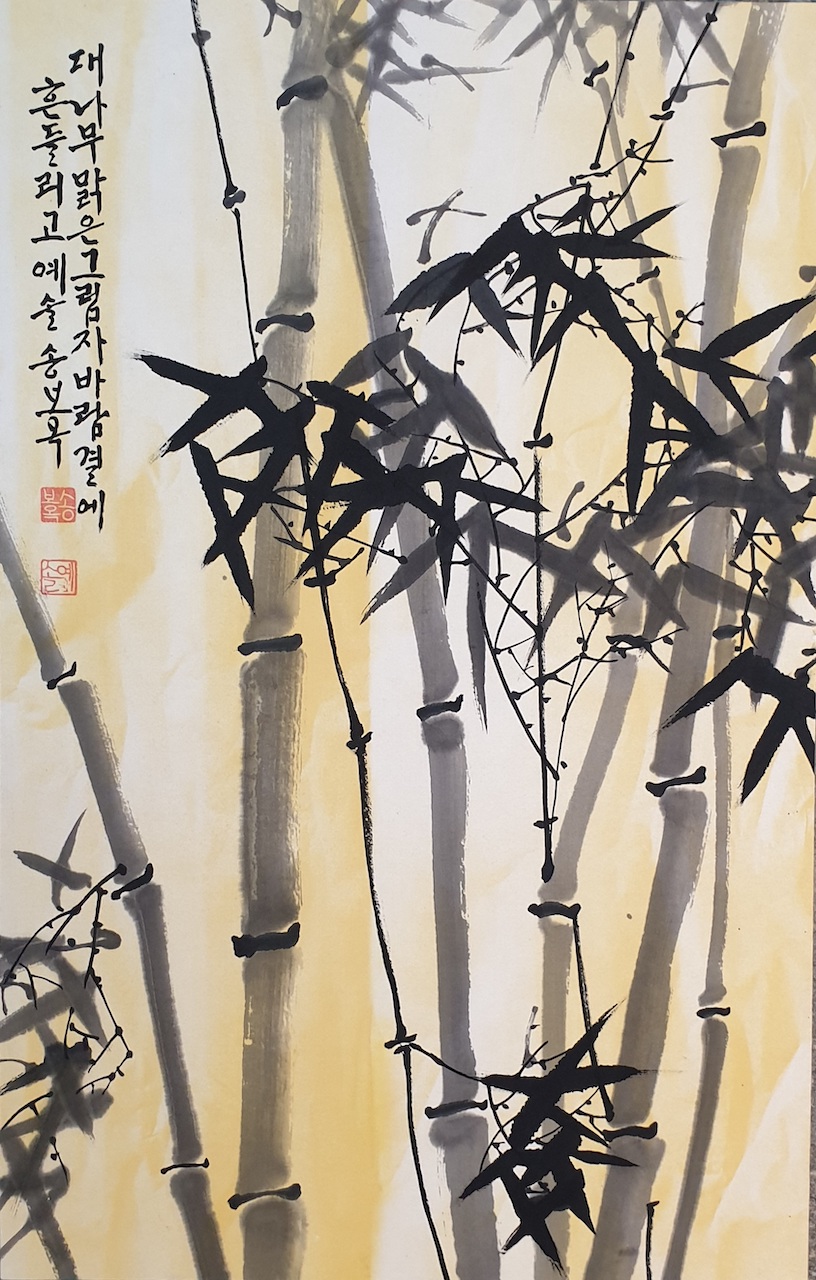 대나무 맑은 그림자 바람결에
흔들리고 예솔 송보옥
송보옥
예솔